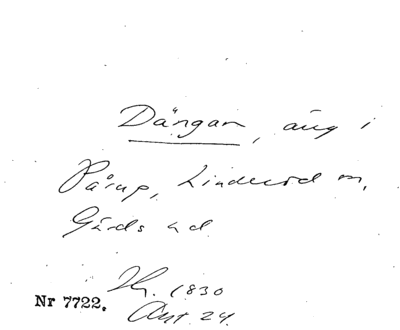 Dängan, äng i
Pårup, Linderöd sn,
Gärds hd
1830
Nr 7722. Akt 24.